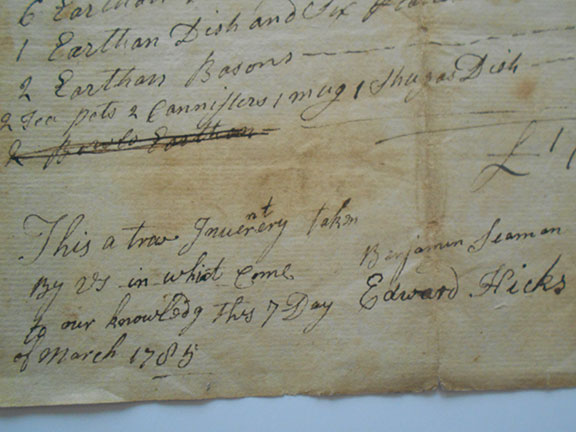 6 Earthan
1 Earthan Dish and Six
2 Earthan Basons
2 Tea pots 2 Cannisters 1 mug 1 Shugar Dish
2 Bowls Earthan
£ 1
This a true Inventery takn
By Us in what Come
to our knowledg this 7 Day
of March 1785
Benjamin Seaman
Edward Hicks